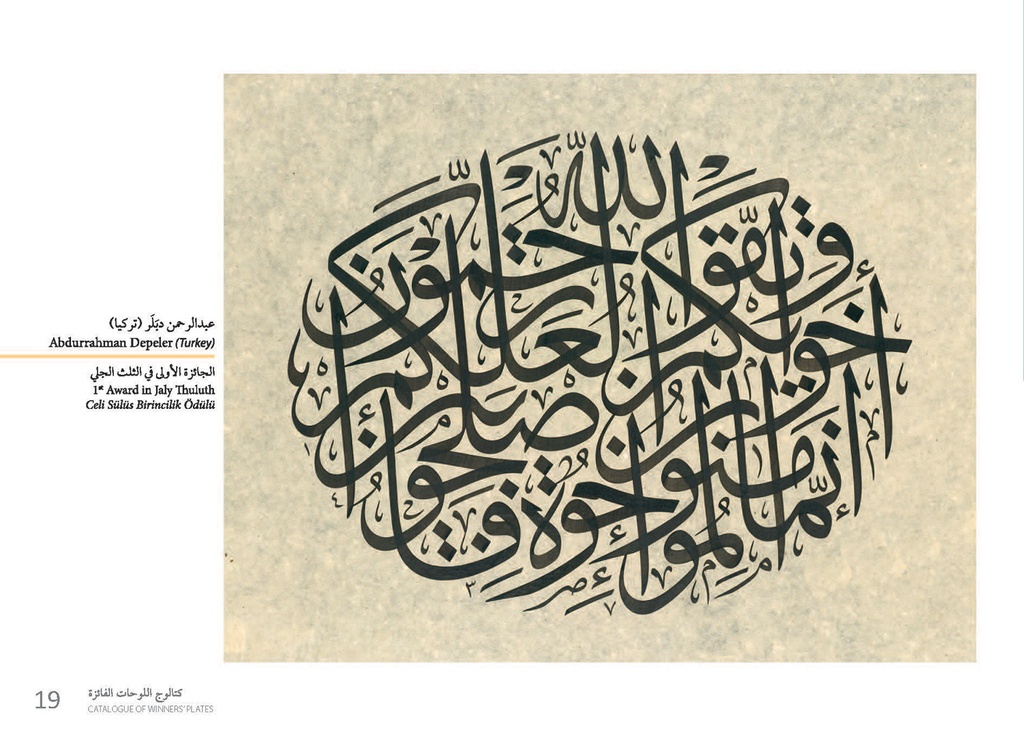 عبدالرحمن دبَلَر (تركيا)
Abdurrahman Depeler (Turkey)
الجائزة الأولى في الثلث الجلي
1st Award in Jaly Thuluth
Celi Sülüs Birincilik Ödülü
إنما المؤمنون إخوة فأصلحوا بين أخويكم واتقوا الله لعلكم ترحمون
19
كتالوج اللوحات الفائزة
CATALOGUE OF WINNERS' PLATES